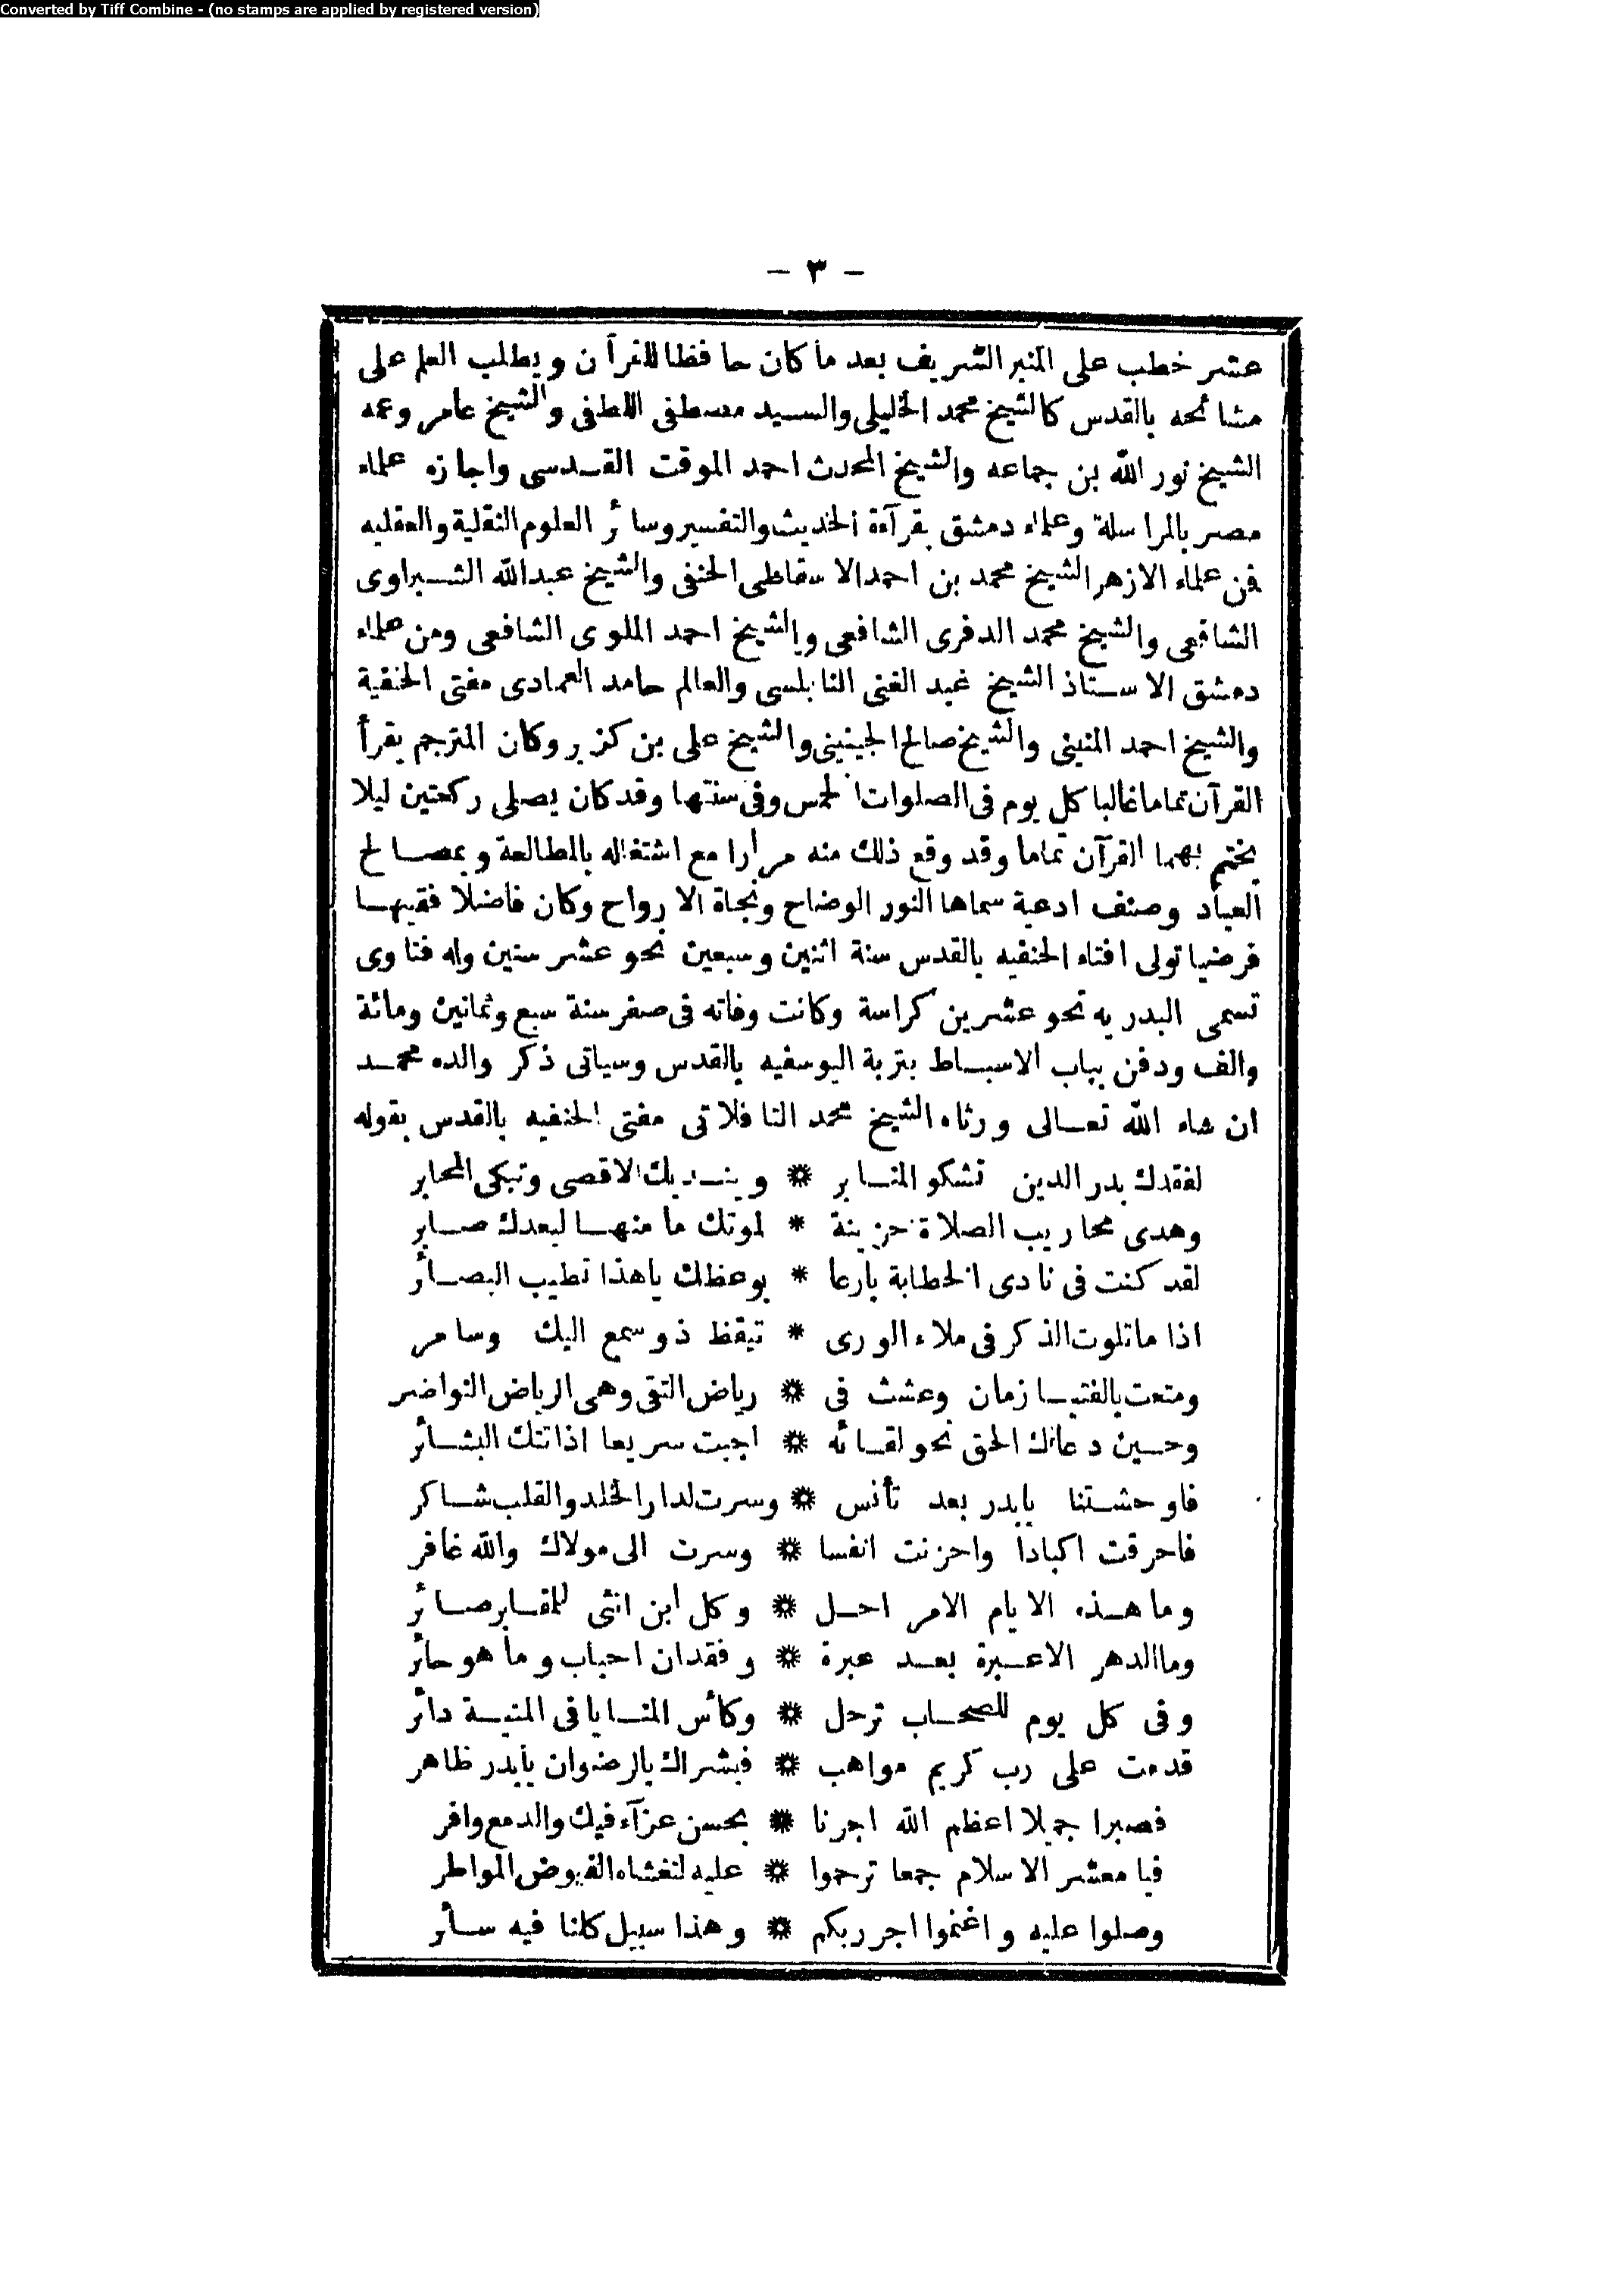 Converted by Tiff Combine - (no stamps are applied by registered version)
— ٣ —
عشر خطب على المنبر الشريف بعد ما كان حافظا للقرآن ويطلب العلم على
مشائخه بالقدس كالشيخ محمد الخليلى والسيد مصطفى اللطفى والشيخ عامر وعمه
الشيخ نور الله بن جماعه والشيخ المحدث احمد الموقت القدسى واجازه علماء
مصر بالمراسلة وعلماء دمشق بقرآءة الحديث والتفسير وسائر العلوم النقلية والعقليه
فمن علماء الازهر الشيخ محمد بن احمد الاسقاطى الحنفى والشيخ عبدالله الشبراوى
الشافعى والشيخ محمد الدفرى الشافعى والشيخ احمد الملوى الشافعى ومن علماء
دمشق الاستاذ الشيخ عبد الغنى النابلسى والعالم حامد العمادى مفتى الحنفية
والشيخ احمد المنينى والشيخ صالح الجينينى والشيخ على بن كزبر وكان المترجم يقرأ
القرآن تماما غالبا كل يوم فى الصلوات الخمس وفى سنتها وقد كان يصلى ركعتين ليلا
يختم بهما القرآن تماما وقد وقع ذلك منه مرارا مع اشتغاله بالمطالعة وبمصالح
العباد وصنف ادعية سماها النور الوضاح ونجاة الارواح وكان فاضلا فقيها
فرضيا تولى افتاء الحنفيه بالقدس سنة اثنين وسبعين نحو عشر سنين وله فتاوى
تسمى البدريه نحو عشرين كراسة وكانت وفاته فى صفر سنة سبع وثمانين ومائة
والف ودفن بباب الاسباط بتربة اليوسفيه بالقدس وسياتى ذكر والده محمد
ان شاء الله تعالى ورثاه الشيخ محمد التافلاتى مفتى الحنفيه بالقدس بقوله
لفقدك بدر الدين تشكو المنابر * ويندبك الاقصى وتبكى المحابر
وهدى محاريب الصلاة حزينة * لموتك ما منها لبعدك صابر
لقد كنت فى نادى الخطابة بارعا * بوعظك ياهذا تطيب البصائر
اذا ماتلوت الذكر فى ملاء الورى * تيقظ ذو سمع اليك وسامر
ومتعت بالفتيا زمان وعشت فى * رياض التقى وهى الرياض النواضر
وحسين دعاك الحق نحو لقائه * اجبت سريعا اذ اتتك البشائر
فاوحشتنا يابدر بعد تأنس * وسرت لدار الخلد والقلب شاكر
فاحرقت اكبادا واحزنت انفسا * وسرت الى مولاك والله غافر
وما هذه الايام الامراحل * وكل ابن انثى للمقابر صائر
وماالدهر الاعبرة بعد عبرة * وفقدان احباب وما هو حائر
وفى كل يوم للصحاب ترحل * وكأس المنايا فى المنية دائر
قدمت على رب كريم مواهب * فبشراك بالرضوان يابدر ظاهر
فصبرا جميلا اعظم الله اجرنا * بحسن عزآء فيك والدمع وافر
فيا معشر الاسلام جمعا ترحموا * عليه لتغشاه الفيوض المواطر
وصلوا عليه واغنموا اجر ربكم * وهذا سبيل كلنا فيه سائر